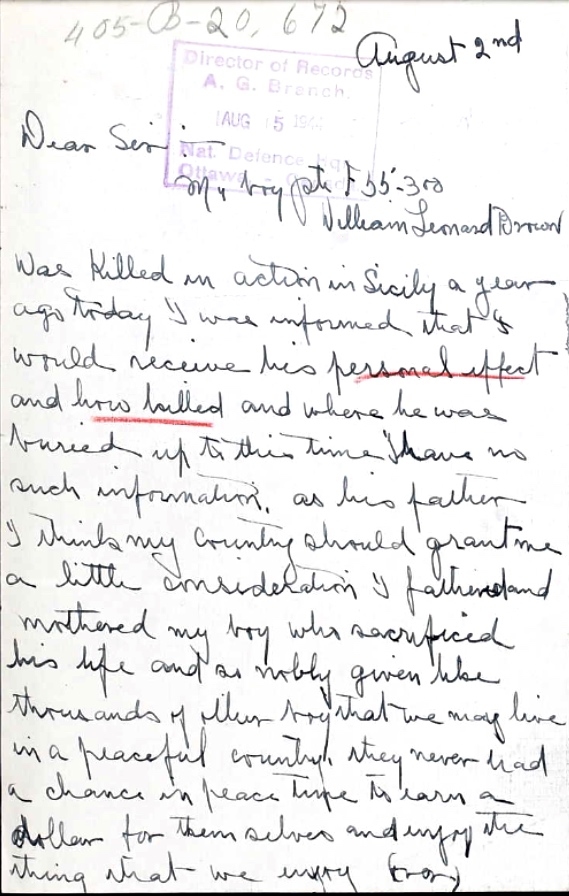 405-B-20,672
August 2nd
Director of Records
A. G. Branch.
AUG 5 194
Nat. Defence Hq
Ottawa -
Dear Sir :-
My boy pte F 55-300
William Leonard Brown
was killed in action in Sicily a year
ago today I was informed that I
would receive his personal effect
and how killed and where he was
buried up to this time I have no
such information, as his father
I think my Country should grant me
a little consideration I fathered and
mothered my boy who sacrificed
his life and so nobly given like
thousands of other boy that we may live
in a peaceful country, they never had
a chance in peace time to earn a
dollar for them selves and enjoy the
thing that we enjoy